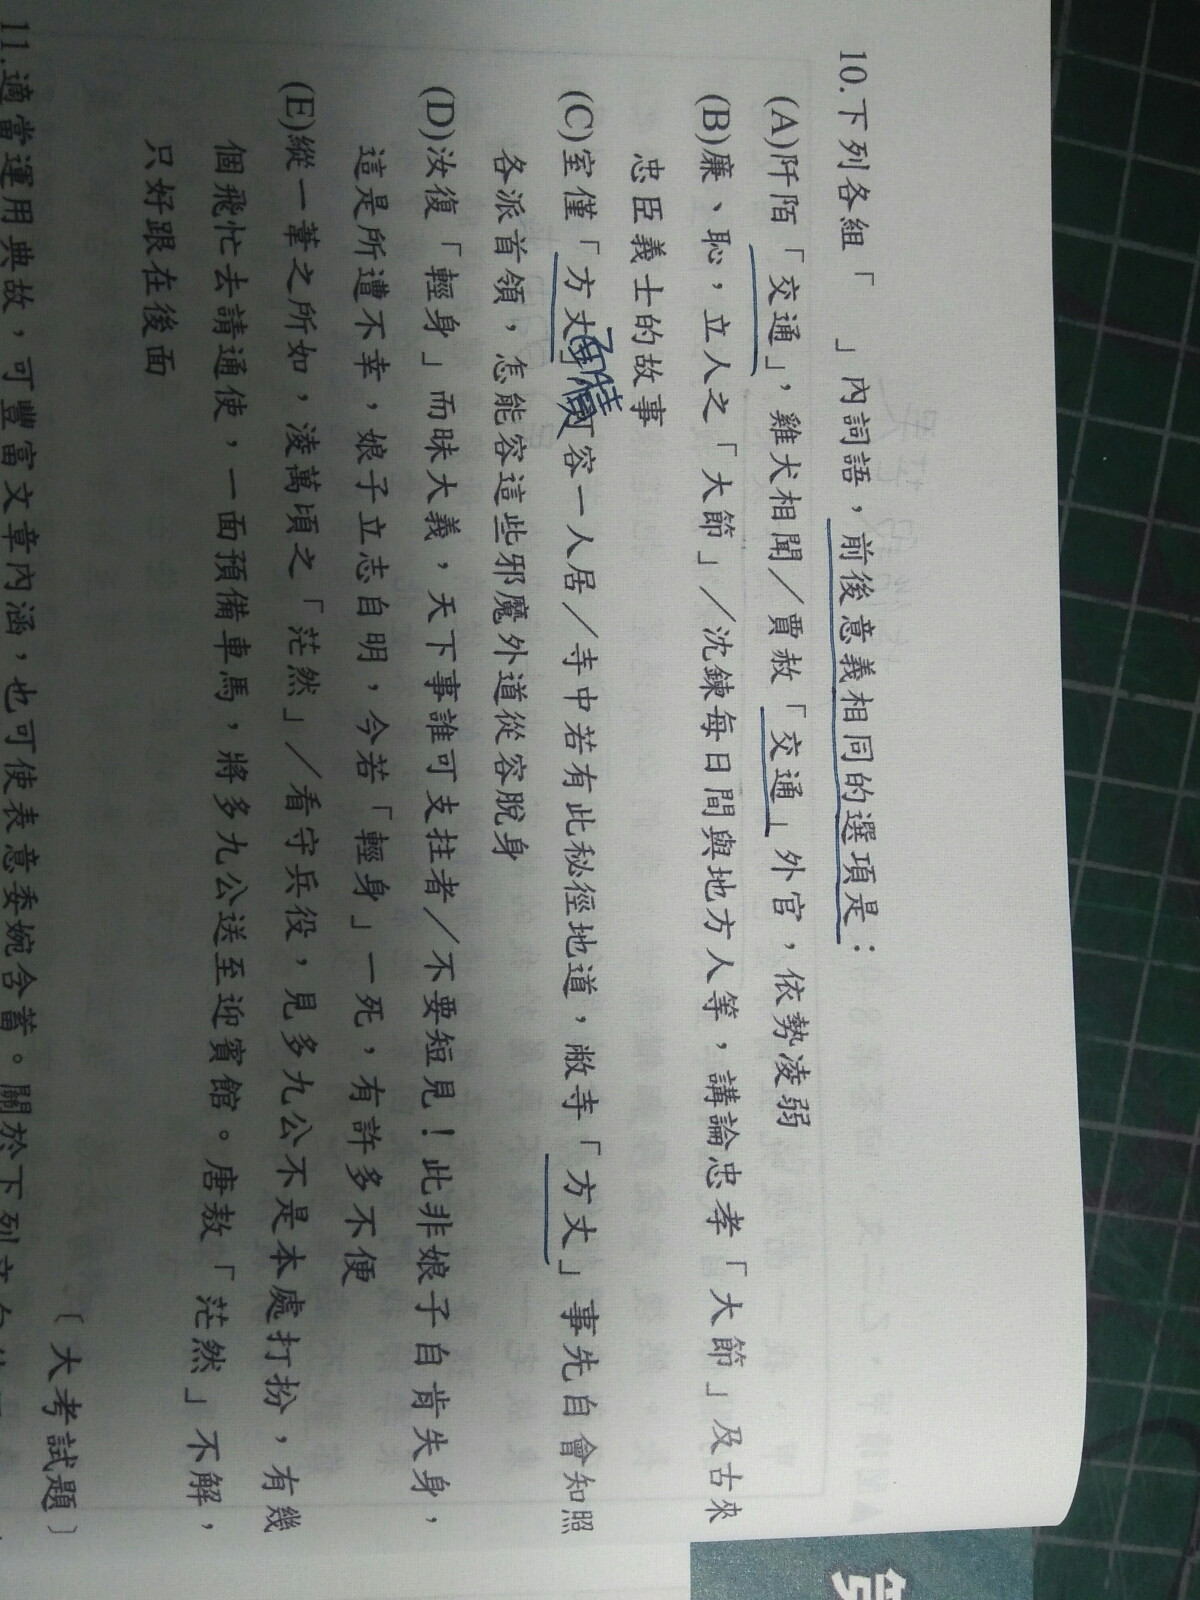 10.下列各組「　　」內詞語，前後意義相同的選項是：
(A)阡陌「交通」，雞犬相聞／賈赦「交通」外官，依勢凌弱
(B)廉、恥，立人之「大節」／沈鍊每日間與地方人等，講論忠孝「大節」及古來
忠臣義士的故事
(C)室僅「方丈」，可容一人居／寺中若有此秘徑地道，敝寺「方丈」事先自會知照
各派首領，怎能容這些邪魔外道從容脫身
(D)汝復「輕身」而昧大義，天下事誰可支拄者／不要短見！此非娘子自肯失身，
這是所遭不幸，娘子立志自明，今若「輕身」一死，有許多不便
(E)縱一葦之所如，淩萬頃之「茫然」／看守兵役，見多九公不是本處打扮，有幾
個飛忙去請通使，一面預備車馬，將多九公送至迎賓館。唐敖「茫然」不解，
只好跟在後面
〔大考試題〕
11.適當運用典故，可豐富文章內涵，也可使表意委婉含蓄。關於下列